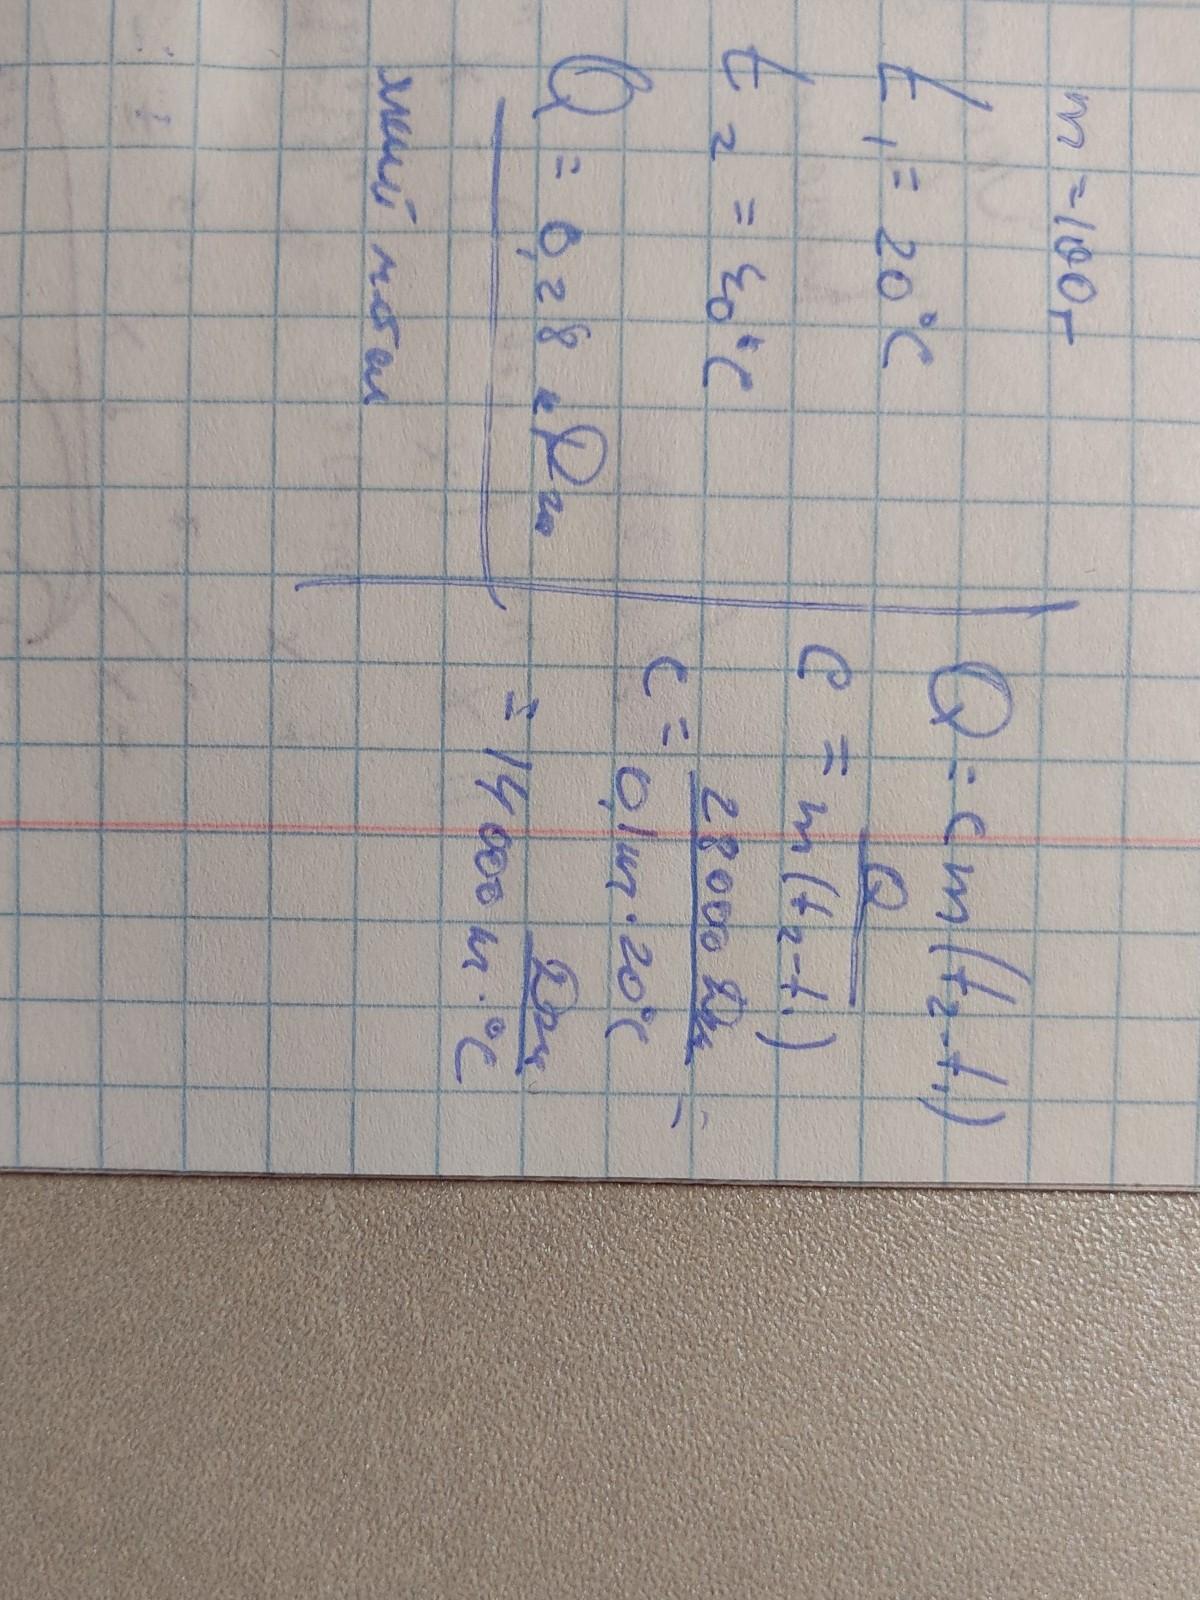 m = 100г
t₁ = 20°C
t₂ = 40°C
Q = 0,28 кДж
який метал
Q = cm(t₂-t₁)
c = Q / m(t₂-t₁)
c = 28000 Дж / 0,1 кг · 20°C =
= 14000 Дж / кг · °C